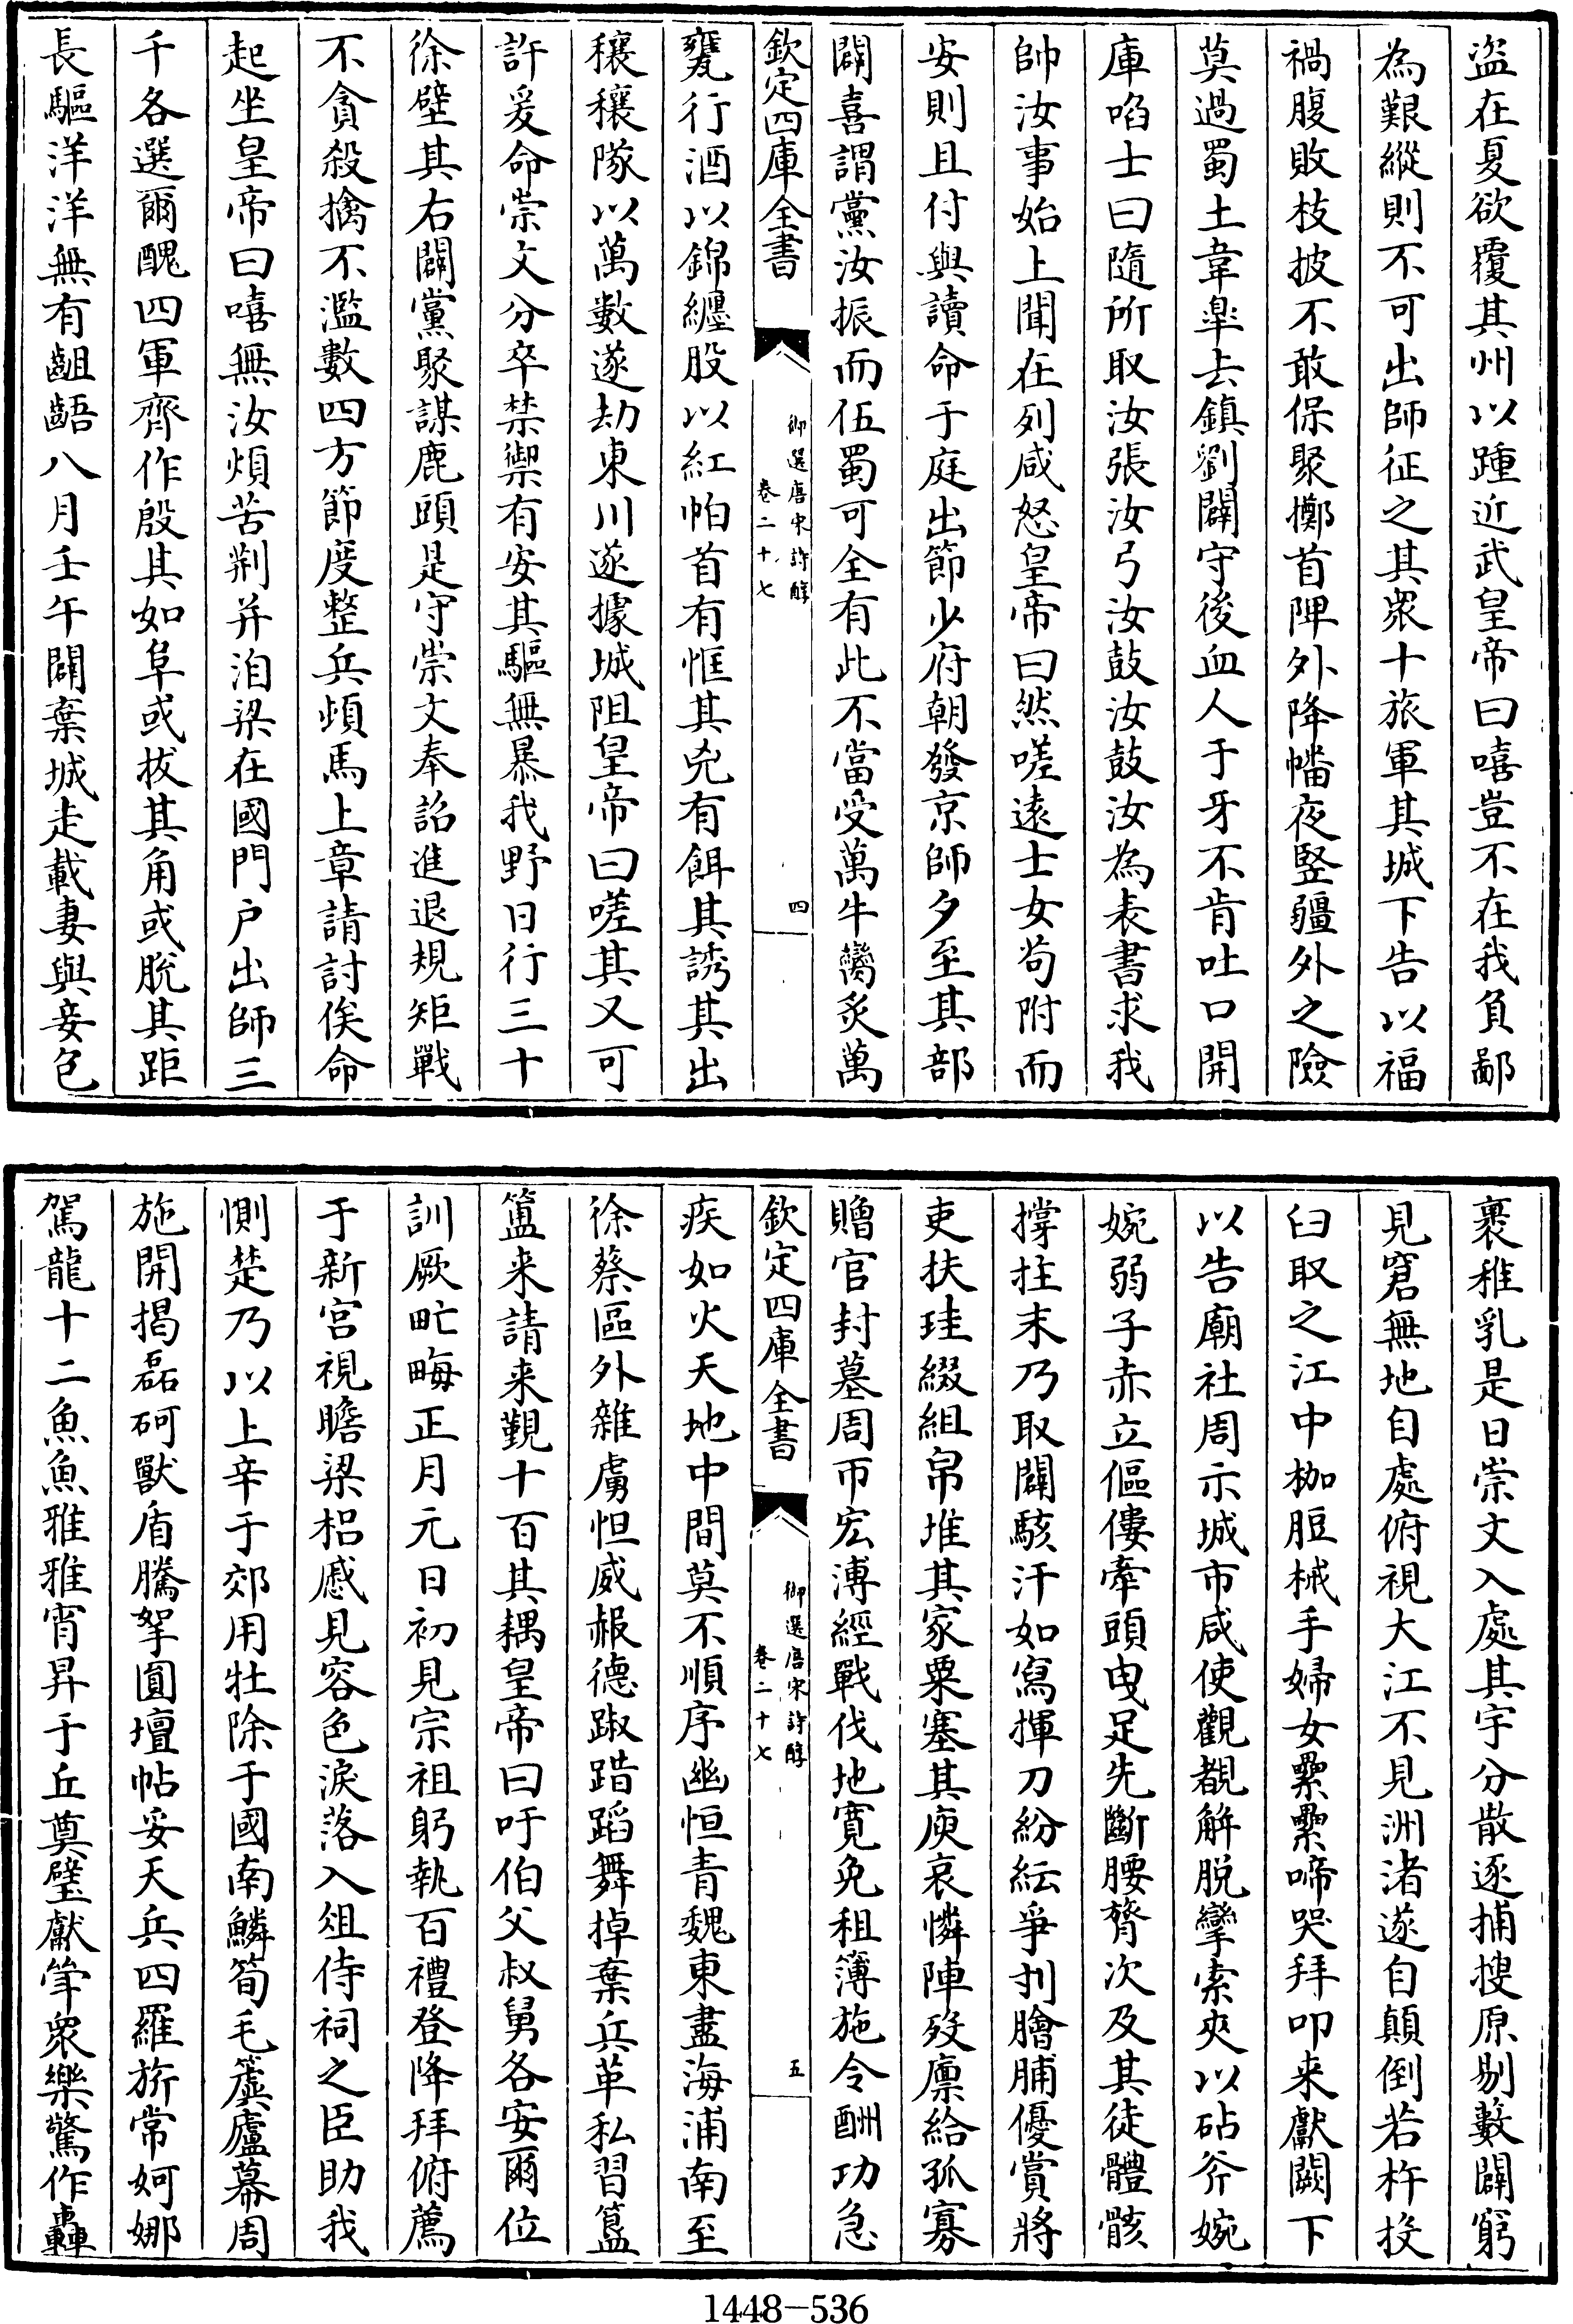 盜在夏欲覆其州以踵近武皇帝曰嘻豈不在我負鄙
為艱縱則不可出師征之其衆十旅軍其城下告以福
禍腹敗枝披不敢保聚擲首陴外降幡夜豎疆外之險
莫過蜀土韋臯去鎮劉闢守後血人于牙不肯吐口開
庫啗士曰隨所取汝張汝弓汝鼓汝鼓汝為表書求我
帥汝事始上聞在列咸怒皇帝曰然嗟遠士女苟附而
安則且付與讀命于庭出節少府朝發京師夕至其部
闢喜謂黨汝振而伍蜀可全有此不當受萬牛臠炙萬
欽定四庫全書
御選唐宋詩醇
卷二十七
四
甕行酒以錦纏股以紅帕首有恇其兇有餌其誘其出
穰穰隊以萬數遂劫東川遂據城阻皇帝曰嗟其又可
許爰命崇文分卒禁禦有安其驅無暴我野日行三十
徐壁其右闢黨聚謀鹿頭是守崇文奉詔進退規矩戰
不貪殺擒不濫數四方節度整兵頓馬上章請討俟命
起坐皇帝曰嘻無汝煩苦荆并洎梁在國門户出師三
千各選爾醜四軍齊作殷其如阜或拔其角或脫其距
長驅洋洋無有齟齬八月壬午闢棄城走載妻與妾包
裹稚乳是日崇文入處其宇分散逐捕搜原剔藪闢窮
見窘無地自處俯視大江不見洲渚遂自顛倒若杵投
臼取之江中枷脰械手婦女纍纍啼哭拜叩來獻闕下
以告廟社周示城市咸使觀覩解脫攣索夾以砧斧婉
婉弱子赤立傴僂牽頭曳足先斷腰膂次及其徒體骸
撐拄末乃取闢駭汗如寫揮刀紛紜爭刌膾脯優賞將
吏扶珪綴組帛堆其家粟塞其庾哀憐陣歿廪給孤寡
贈官封墓周帀宏溥經戰伐地寛免租簿施令酬功急
欽定四庫全書
御選唐宋詩醇
卷二十七
五
疾如火天地中間莫不順序幽恒青魏東盡海浦南至
徐蔡區外雜虜怛威赧德踧踖蹈舞掉棄兵革私習簋
簠來請來覲十百其耦皇帝曰吁伯父叔舅各安爾位
訓厥甿畮正月元日初見宗祖躬執百禮登降拜俯薦
于新宮視瞻梁梠慼見容色淚落入俎侍祠之臣助我
惻楚乃以上辛于郊用牡除于國南鱗筍毛簴廬幕周
施開揭磊砢獸盾騰拏圓壇帖妥天兵四羅旂常婀娜
駕龍十二魚魚雅雅宵昇于丘奠璧獻斝衆樂驚作轟
1448-536